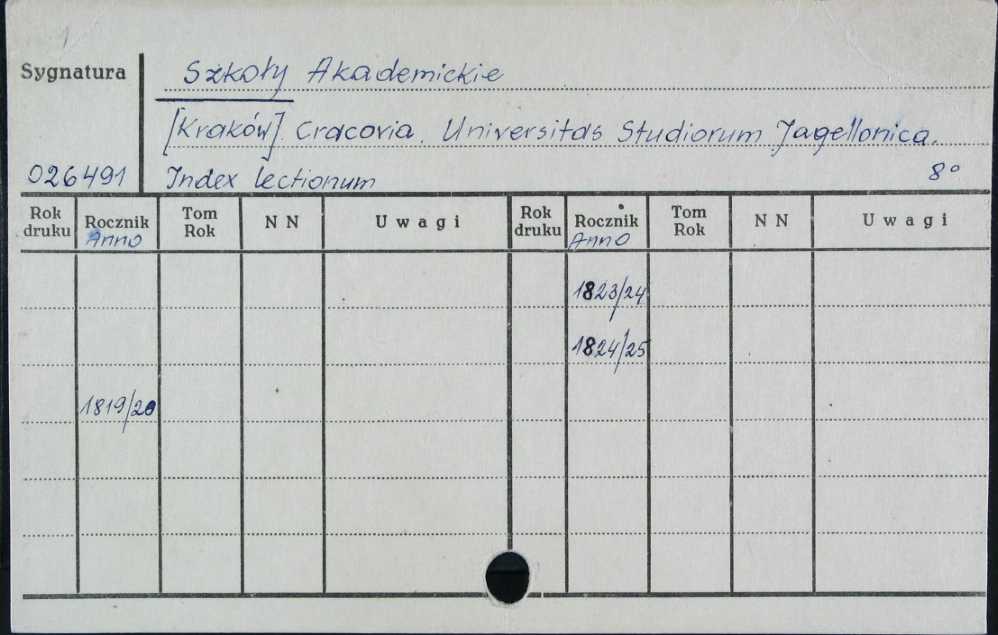 1
Sygnatura
Szkoły Akademickie
[Kraków]. Cracovia. Universitas Studiorum Jagellonica.
026491 Index lectionum 8°
Rok druku Rocznik Anno Tom Rok NN Uwagi Rok druku Rocznik Anno Tom Rok NN Uwagi
1823/24
1824/25
1819/20